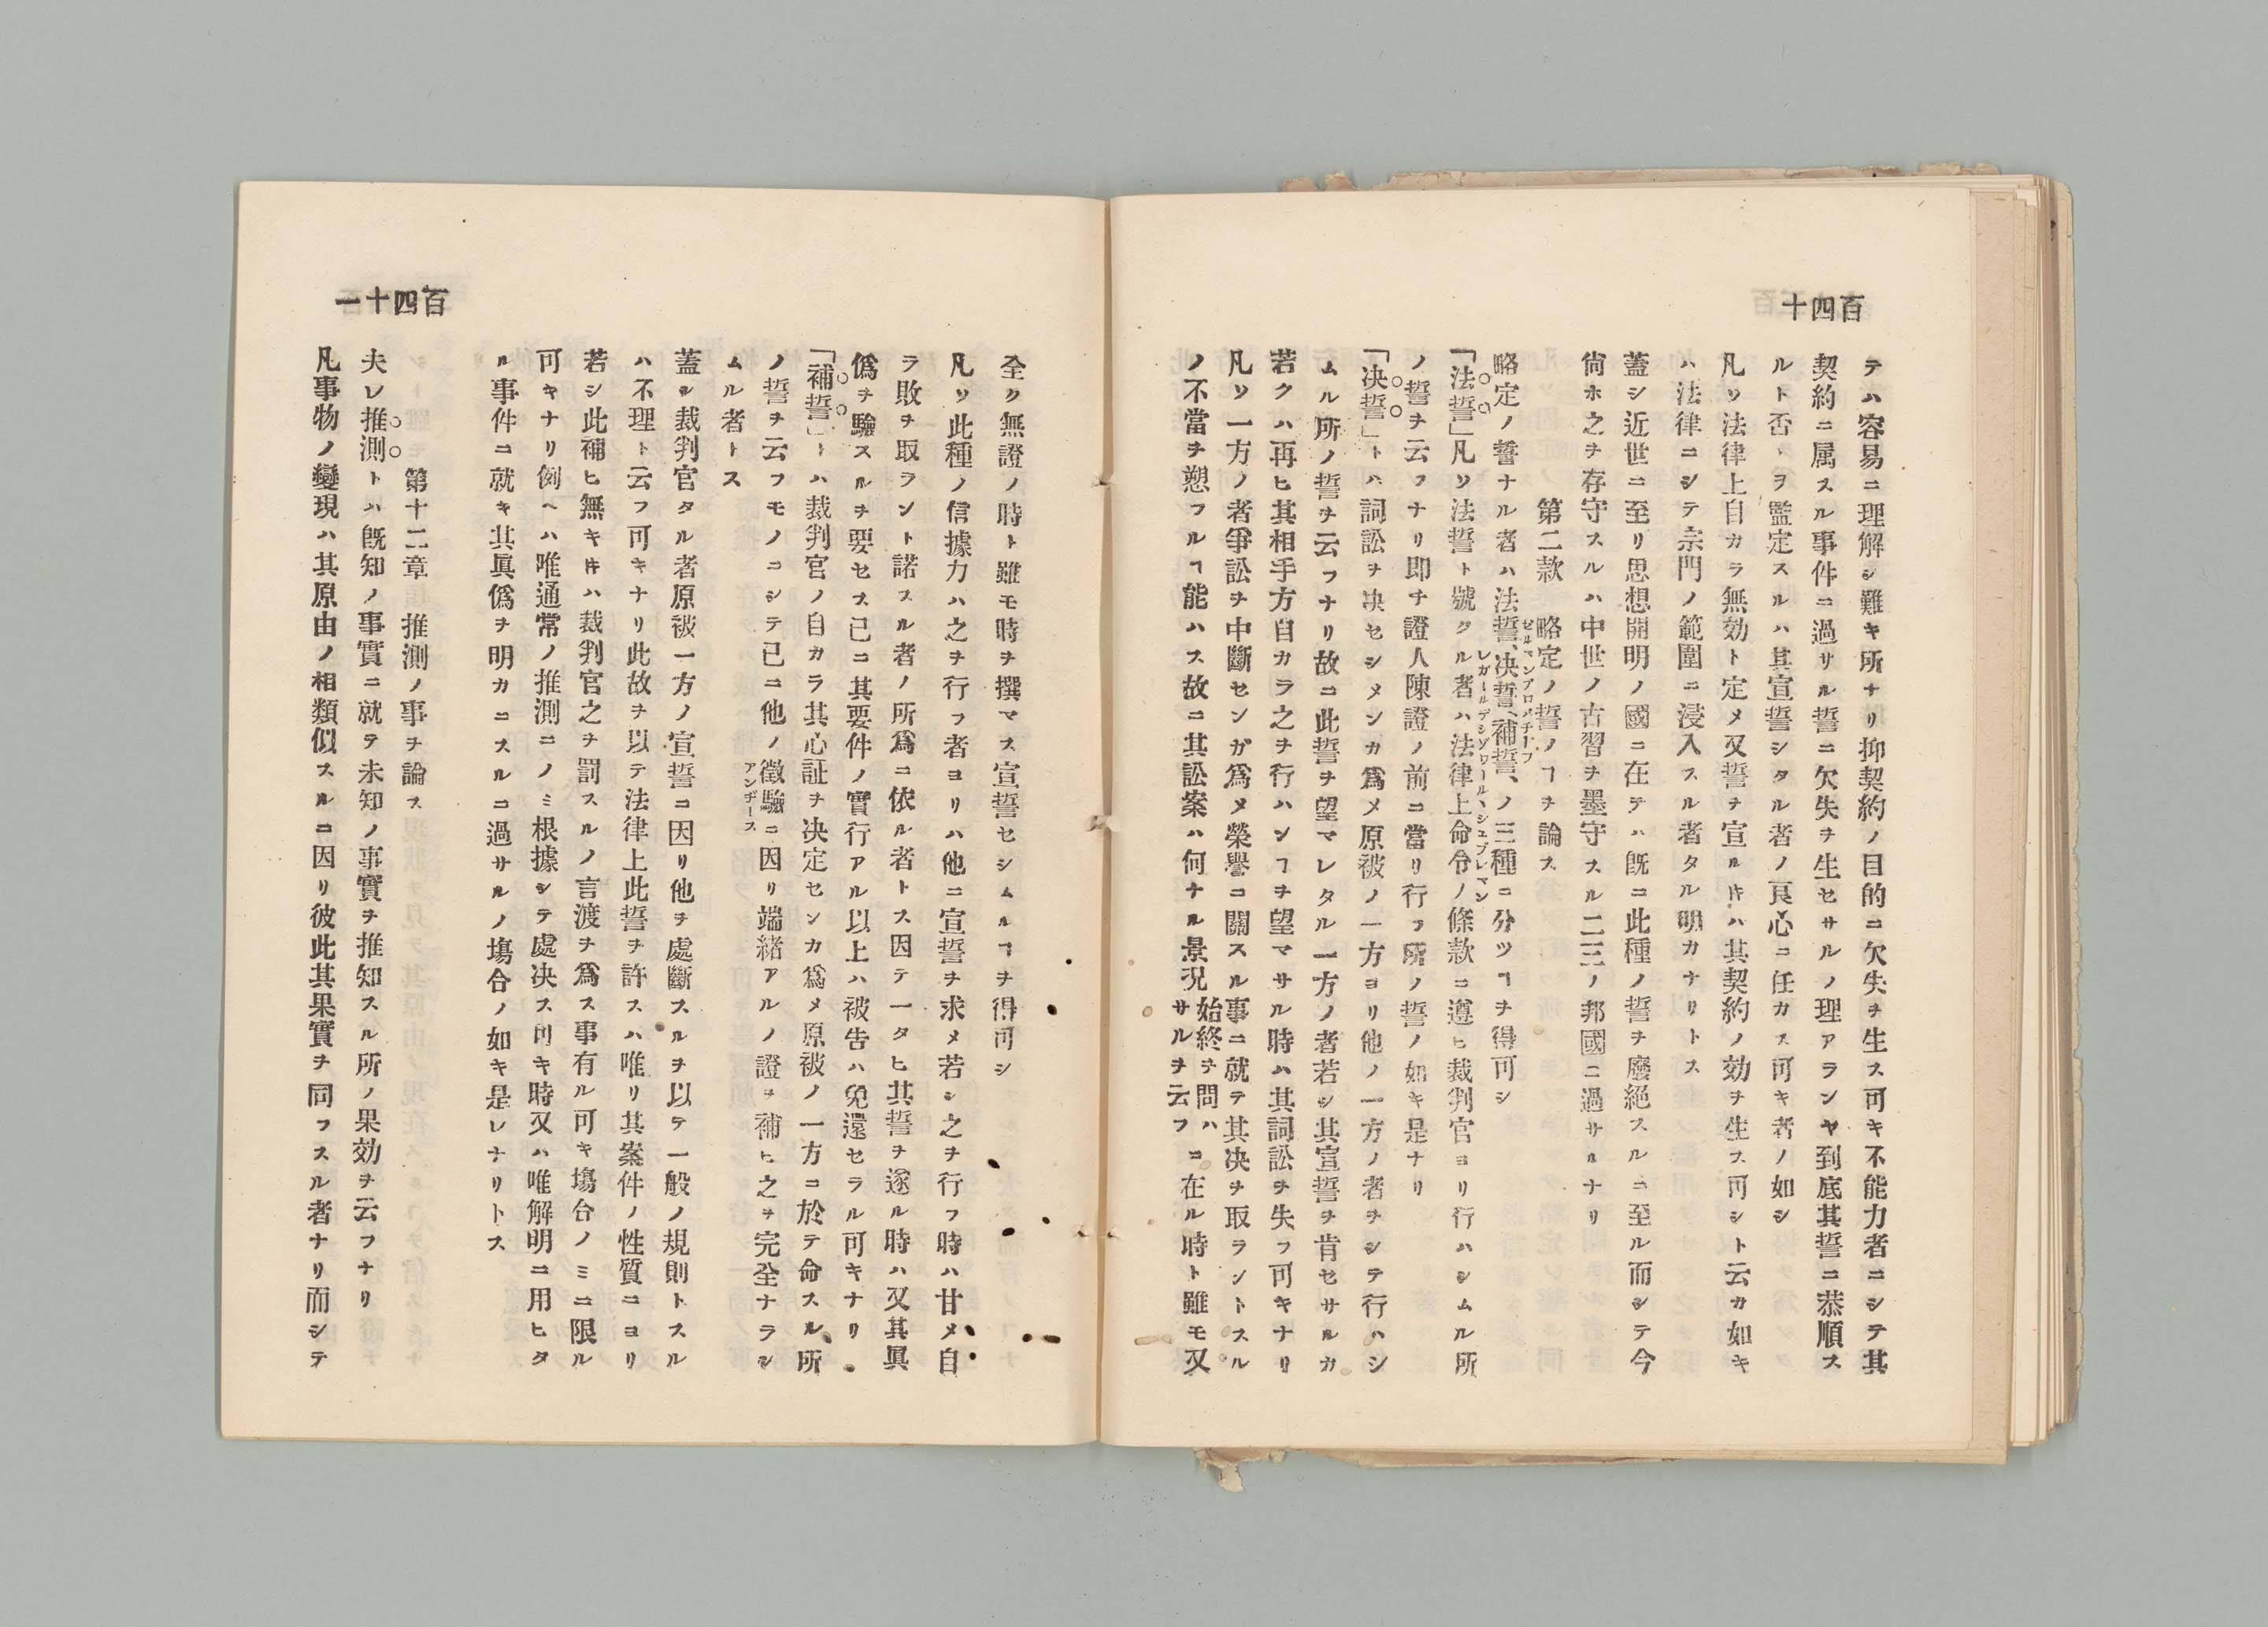 百四十
テハ容易ニ理解シ難キ所ナリ抑契約ノ目的ニ欠失ヲ生ス可キ不能力者ニシテ其
契約ニ属スル事件ニ過サル誓ニ欠失ヲ生セサルノ理アランヤ到底其誓ニ恭順ス
ルト否トヲ監定スルハ其宣誓シタル者ノ良心ニ任カス可キ者ノ如シ
凡ソ法律上自カラ無効ト定メ又誓ヲ宣ル𪜈ハ其契約ノ効ヲ生ス可シト云カ如キ
ハ法律ニシテ宗門ノ範圍ニ浸入スル者タル明カナリトス
蓋シ近世ニ至リ思想開明ノ國ニ在テハ既ニ此種ノ誓ヲ廢絕スルニ至ル而シテ今
尙ホ之ヲ存守スルハ中世ノ古習ヲ墨守スル二三ノ邦國ニ過サルナリ
第二款　略定ノ誓ノヿヲ論ス
略定ノ誓ナル者ハ法誓、决誓、補誓、ノ三種ニ分ツヿヲ得可シ
「法誓」凡ソ法誓ト號クル者ハ法律上命令ノ條款ニ遵ヒ裁判官ヨリ行ハシムル所
ノ誓ヲ云フナリ即チ證人陳證ノ前ニ當リ行フ所ノ誓ノ如キ是ナリ
「决誓」トハ詞訟ヲ决セシメンカ爲メ原被ノ一方ヨリ他ノ一方ノ者ヲシテ行ハシ
ムル所ノ誓ヲ云フナリ故ニ此誓ヲ望マレタル一方ノ者若シ其宣誓ヲ肯セサルカ
若クハ再ヒ其相手方自カラ之ヲ行ハンヿヲ望マサル時ハ其詞訟ヲ失フ可キナリ
凡ソ一方ノ者爭訟ヲ中斷センガ爲メ榮譽ニ關スル事ニ就テ其决ヲ取ラントスル
ノ不當ヲ愬フルヿ能ハス故ニ其訟案ハ何ナル景况始終ヲ問ハサルヲ云フニ在ル時ト雖モ又
百四十一
全ク無證ノ時ト雖モ時ヲ撰マス宣誓セシムルヿヲ得可シ
凡ソ此種ノ信據力ハ之ヲ行フ者ヨリハ他ニ宣誓ヲ求メ若シ之ヲ行フ時ハ甘メ自
ラ敗ヲ取ラント諾スル者ノ所爲ニ依ル者トス因テ一タヒ其誓ヲ遂ル時ハ又其眞
僞ヲ驗スルヲ要セス已ニ其要件ノ實行アル以上ハ被告ハ免還セラル可キナリ
「補誓」トハ裁判官ノ自カラ其心証ヲ决定センカ爲メ原被ノ一方ニ於テ命スル所
ノ誓ヲ云フモノニシテ已ニ他ノ徵驗ニ因リ端緒アルノ證ヲ補ヒ之ヲ完全ナラシ
ムル者トス
蓋シ裁判官タル者原被一方ノ宣誓ニ因リ他ヲ處斷スルヲ以テ一般ノ規則トスル
ハ不理ト云フ可キナリ此故ヲ以テ法律上此誓ヲ許スハ唯リ其案件ノ性質ニヨリ
若シ此補ヒ無キ𪜈ハ裁判官之ヲ罰スルノ言渡ヲ爲ス事有ル可キ塲合ノミニ限ル
可キナリ例ヘハ唯通常ノ推測ニノミ根據シテ處决ス可キ時又ハ唯解明ニ用ヒタ
ル事件ニ就キ其眞僞ヲ明カニスルニ過サルノ塲合ノ如キ是レナリトス
第十二章　推測ノ事ヲ論ス
夫レ推測トハ既知ノ事實ニ就テ未知ノ事實ヲ推知スル所ノ果効ヲ云フナリ
凡事物ノ變現ハ其原由ノ相類似スルニ因リ彼此其果實ヲ同フスル者ナリ而シテ